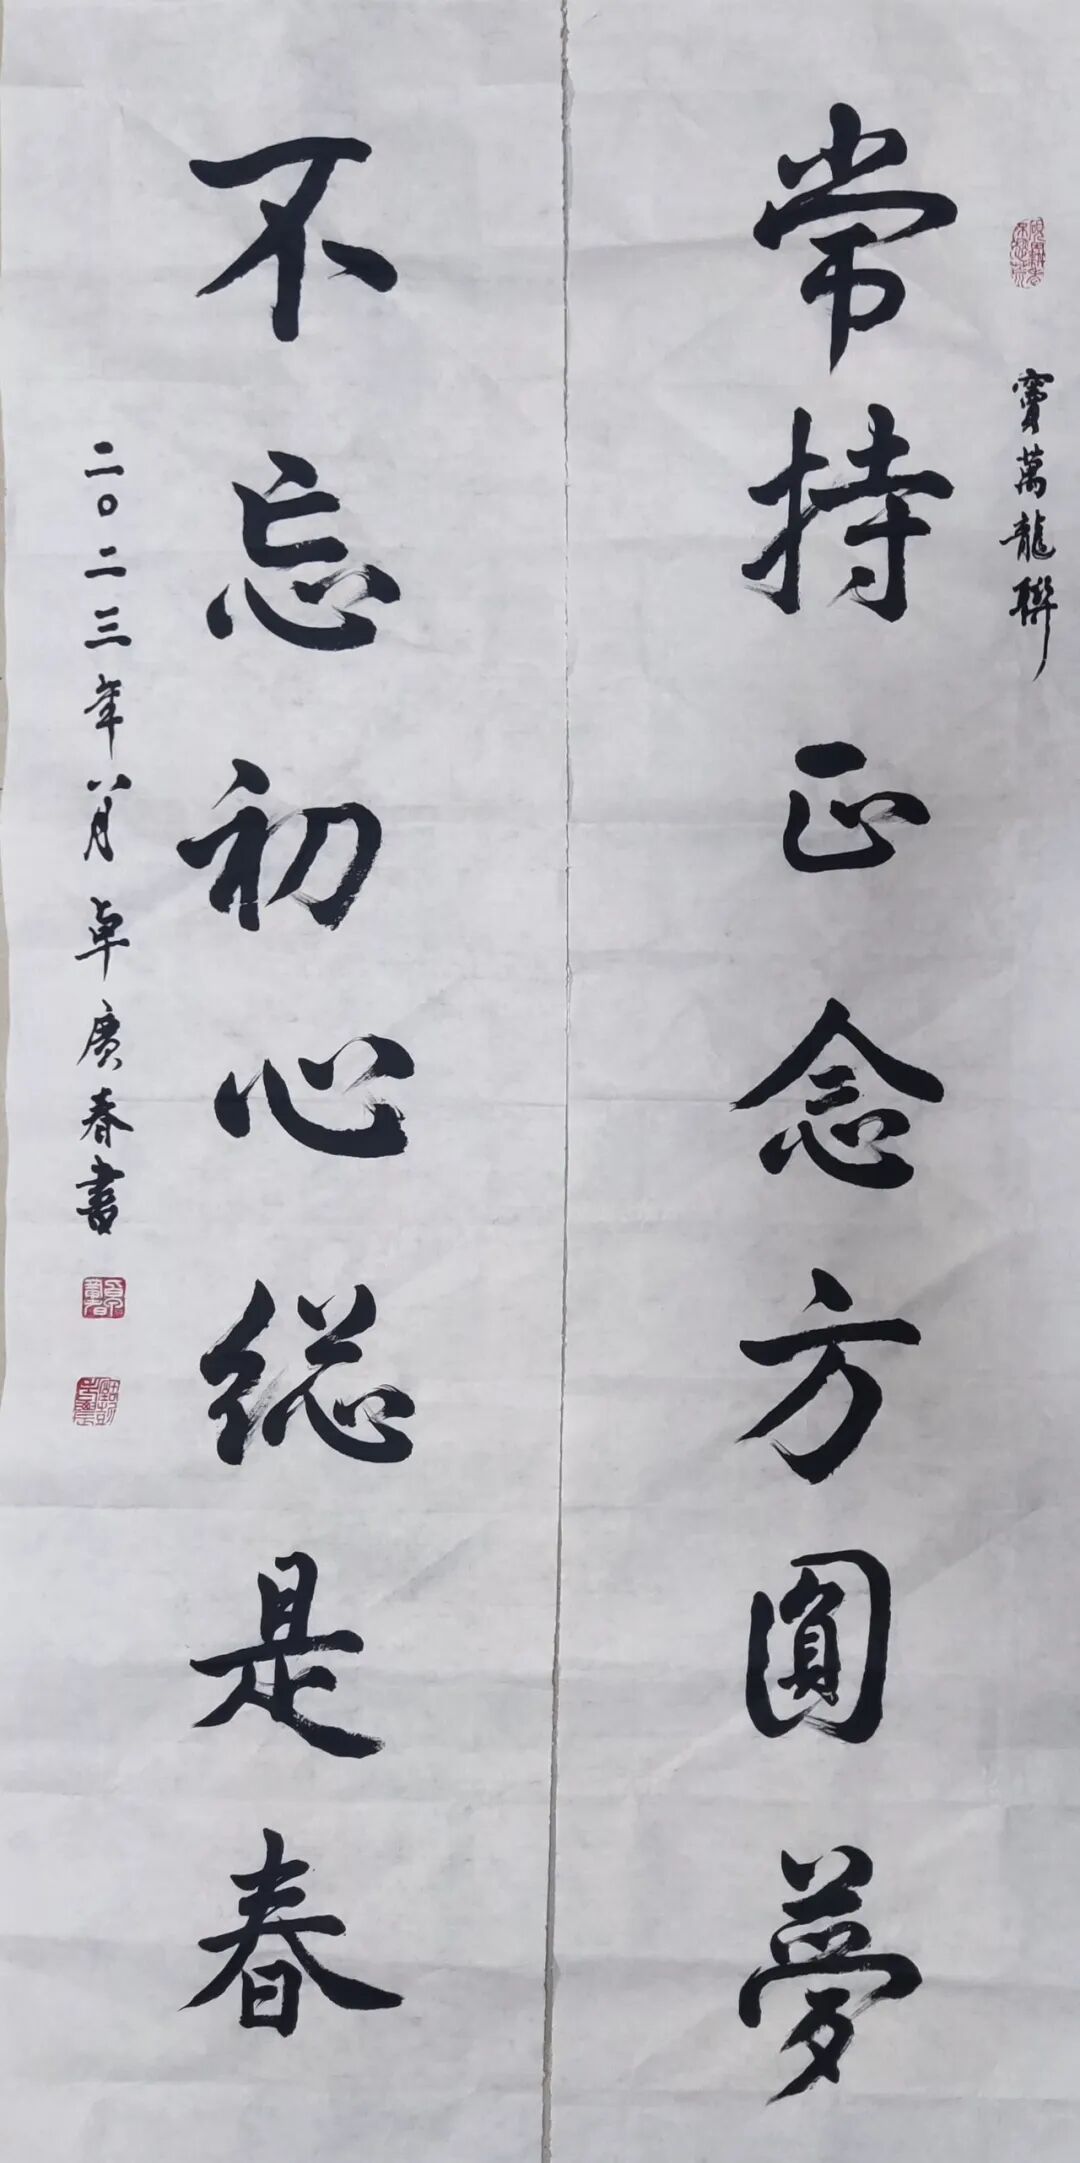 竇萬龍聯
常持正念方圓夢
不忘初心總是春
二〇二三年八月卓賡春書